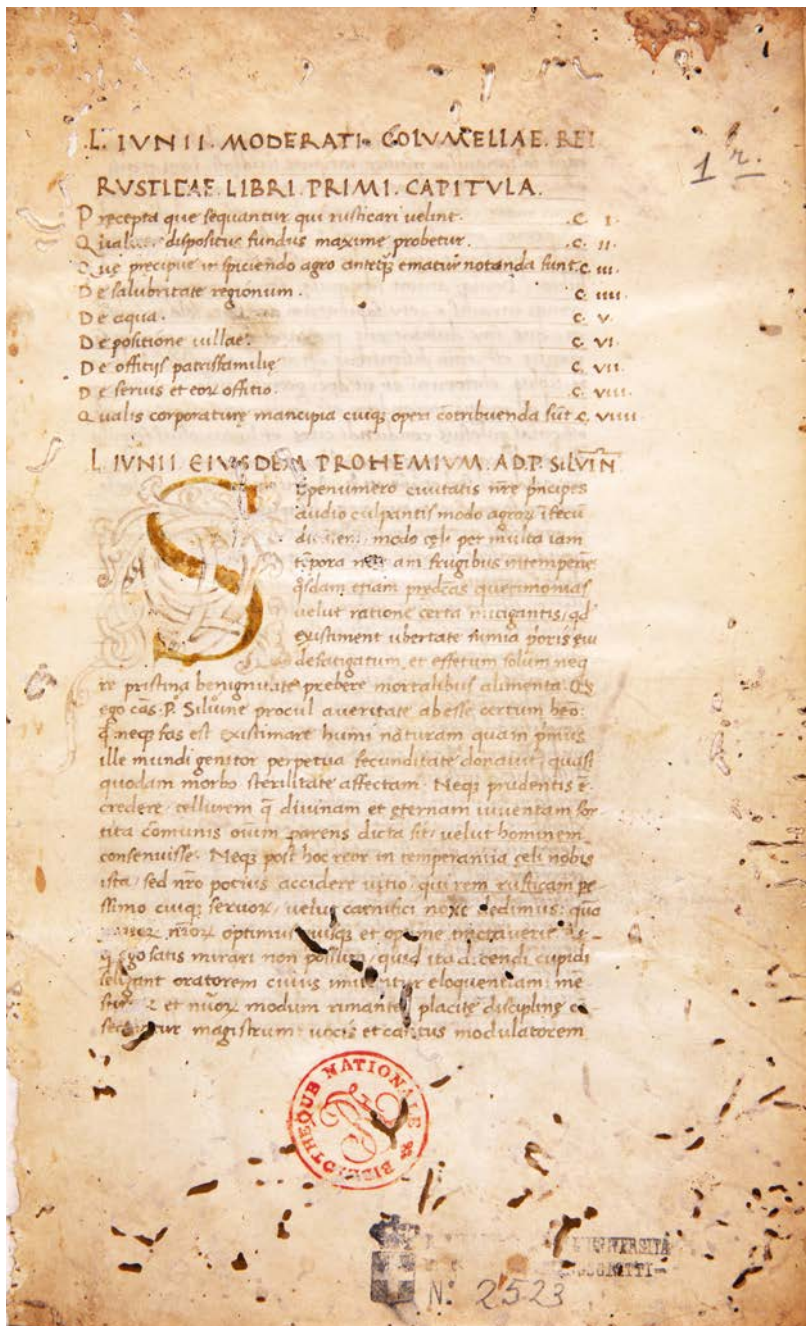 L. IVNII. MODERATI. COLVMELLAE. REI
RVSTICAE. LIBRI. PRIMI. CAPITVLA.
1 r.
Precepta que sequantur qui rusticari uelint. .C. I.
dispositus fundus maxime probetur. .C. II.
Quę precipue in spiciendo agro anteq̃ ematur notanda sunt. C. III.
De salubritate regionum. C. IIII.
De aqua. C. V.
De positione uillae. C. VI.
De officijs patrisfamilię C. VII.
De seruis et eoꝝ offitio. C. VIII.
Qualis corporaturę mancipia cuiqꝫ operi cōtribuenda sūt C. VIIII
L IVNII EIVSDEM PROHEMIVM. AD. P. SILVIN̄
Sepenumero ciuitatis nr̃e p̃ncipes
audio culpantis modo agroꝝ ĩfecũ
modo cęli per multa iam
tẽpora am frugibus intemperiẽ
q̃sdam etiam querimonias
uelut ratione certa mitigantis / qd̃
existiment ubertate p̃oris ęui
defatigatum et effetum solum neq
re pristina benignitate prebere mortalibus alimenta.
ego cãs. P. Siluine procul aueritate abesse certum heo:
q̃ neqꝫ fas est existimare humi naturam quam p̃mus
ille mundi genitor perpetua fecunditate donauit / quasi
quodam morbo sterilitate affectam. Neqꝫ prudentis ẽ
credere tellurem q̃ diuinam et ęternam iuuentam sor-
tita cõmunis oĩum parens dicta sit / uelut hominem
consenuisse. Neqꝫ post hoc reor in temperantia cęli nobis
ista / sed nr̃o potius accidere uitio / qui rem rusticam pe-
ssimo cuiqꝫ seruoꝝ / uelut carnifici noxę dedimus: quã
nr̃oꝝ optimus quisqꝫ et optime tractauerit
ego satis mirari non possum / quid ita dicendi cupidi
seligant oratorem cuius imitentur eloquentiam: mẽ
et nũoꝝ modum rimantes placitę disciplinę cõ-
sectentur magistrum: uocis et cantus modulatorem
BIBLIOTHÈQUE NATIONALE
UNIVERSITA
Nº 2523